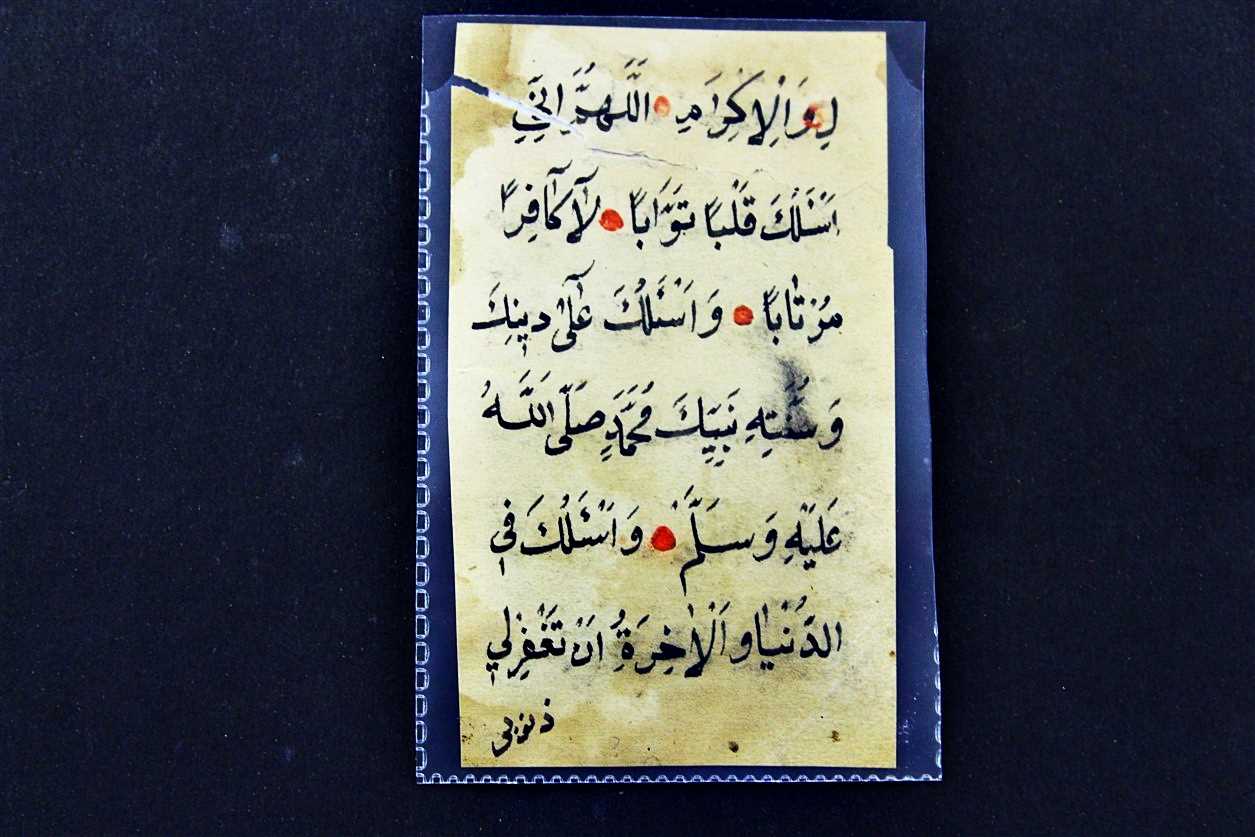 لِ وَالْاِكْرَامِ اَللّٰهُمَّ اِنِّي
اَسْئَلُكَ قَلْبًا تَوَّابًا لَا كَافِرًا
مُرْتَابًا وَاَسْئَلُكَ عَلٰى دِينِكَ
وَسُنَّتِهِ نَبِيِّكَ مُحَمَّدٍ صَلَّى اللّٰهُ
عَلَيْهِ وَسَلَّمَ وَاَسْئَلُكَ فِي
الدُّنْيَا وَالْاٰخِرَةُ اَنْ تَغْفِرْ لِي
ذنوبى